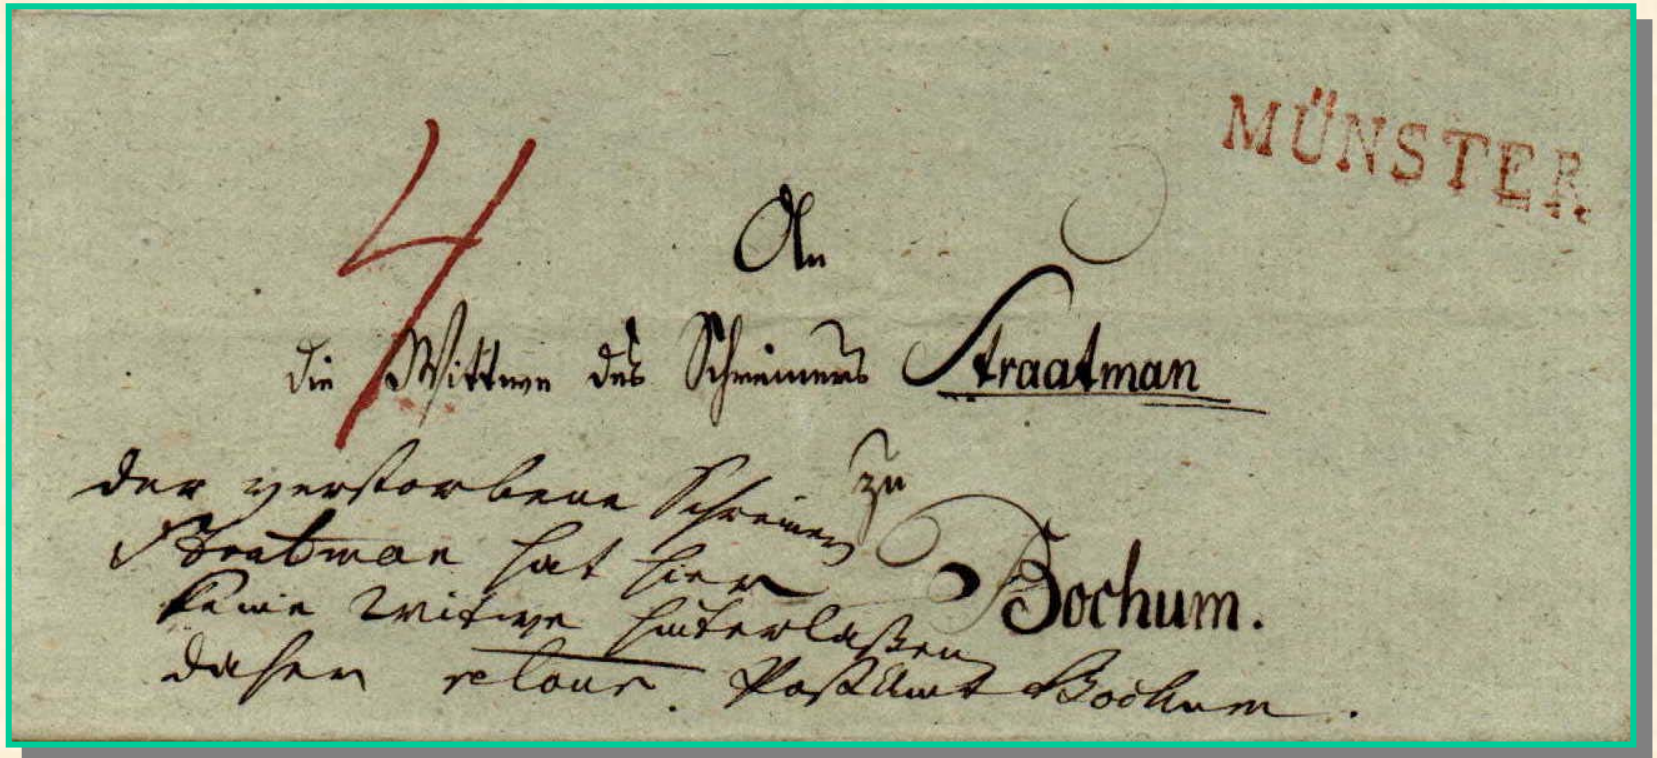 MÜNSTER.
4
An
die Wittwe des Schreiners Straatman
zu
Bochum.
der verstorbene Schreiner
Stratman hat hier
keine Witwe hinterlaßen
daher retour. PostAmt Bochum.